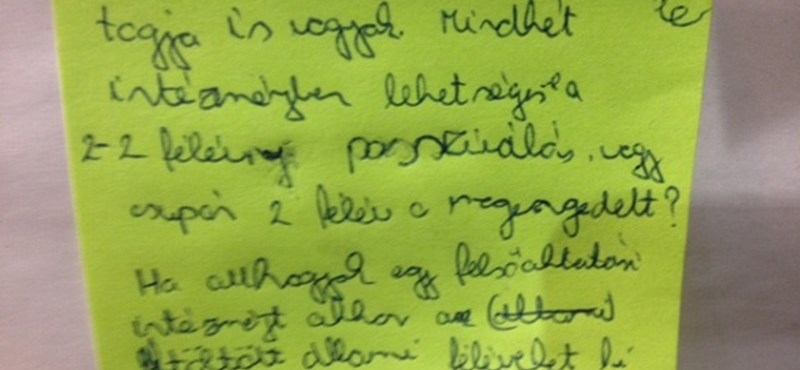 tagja is vagyok. Mindkét
intézményben lehetséges-e a
2-2 félévnyi passziválás, vagy
csupán 2 félév a megengedett?
Ha otthagyok egy felsőoktatási
intézményt akkor az (állami)
állami féléveket ki